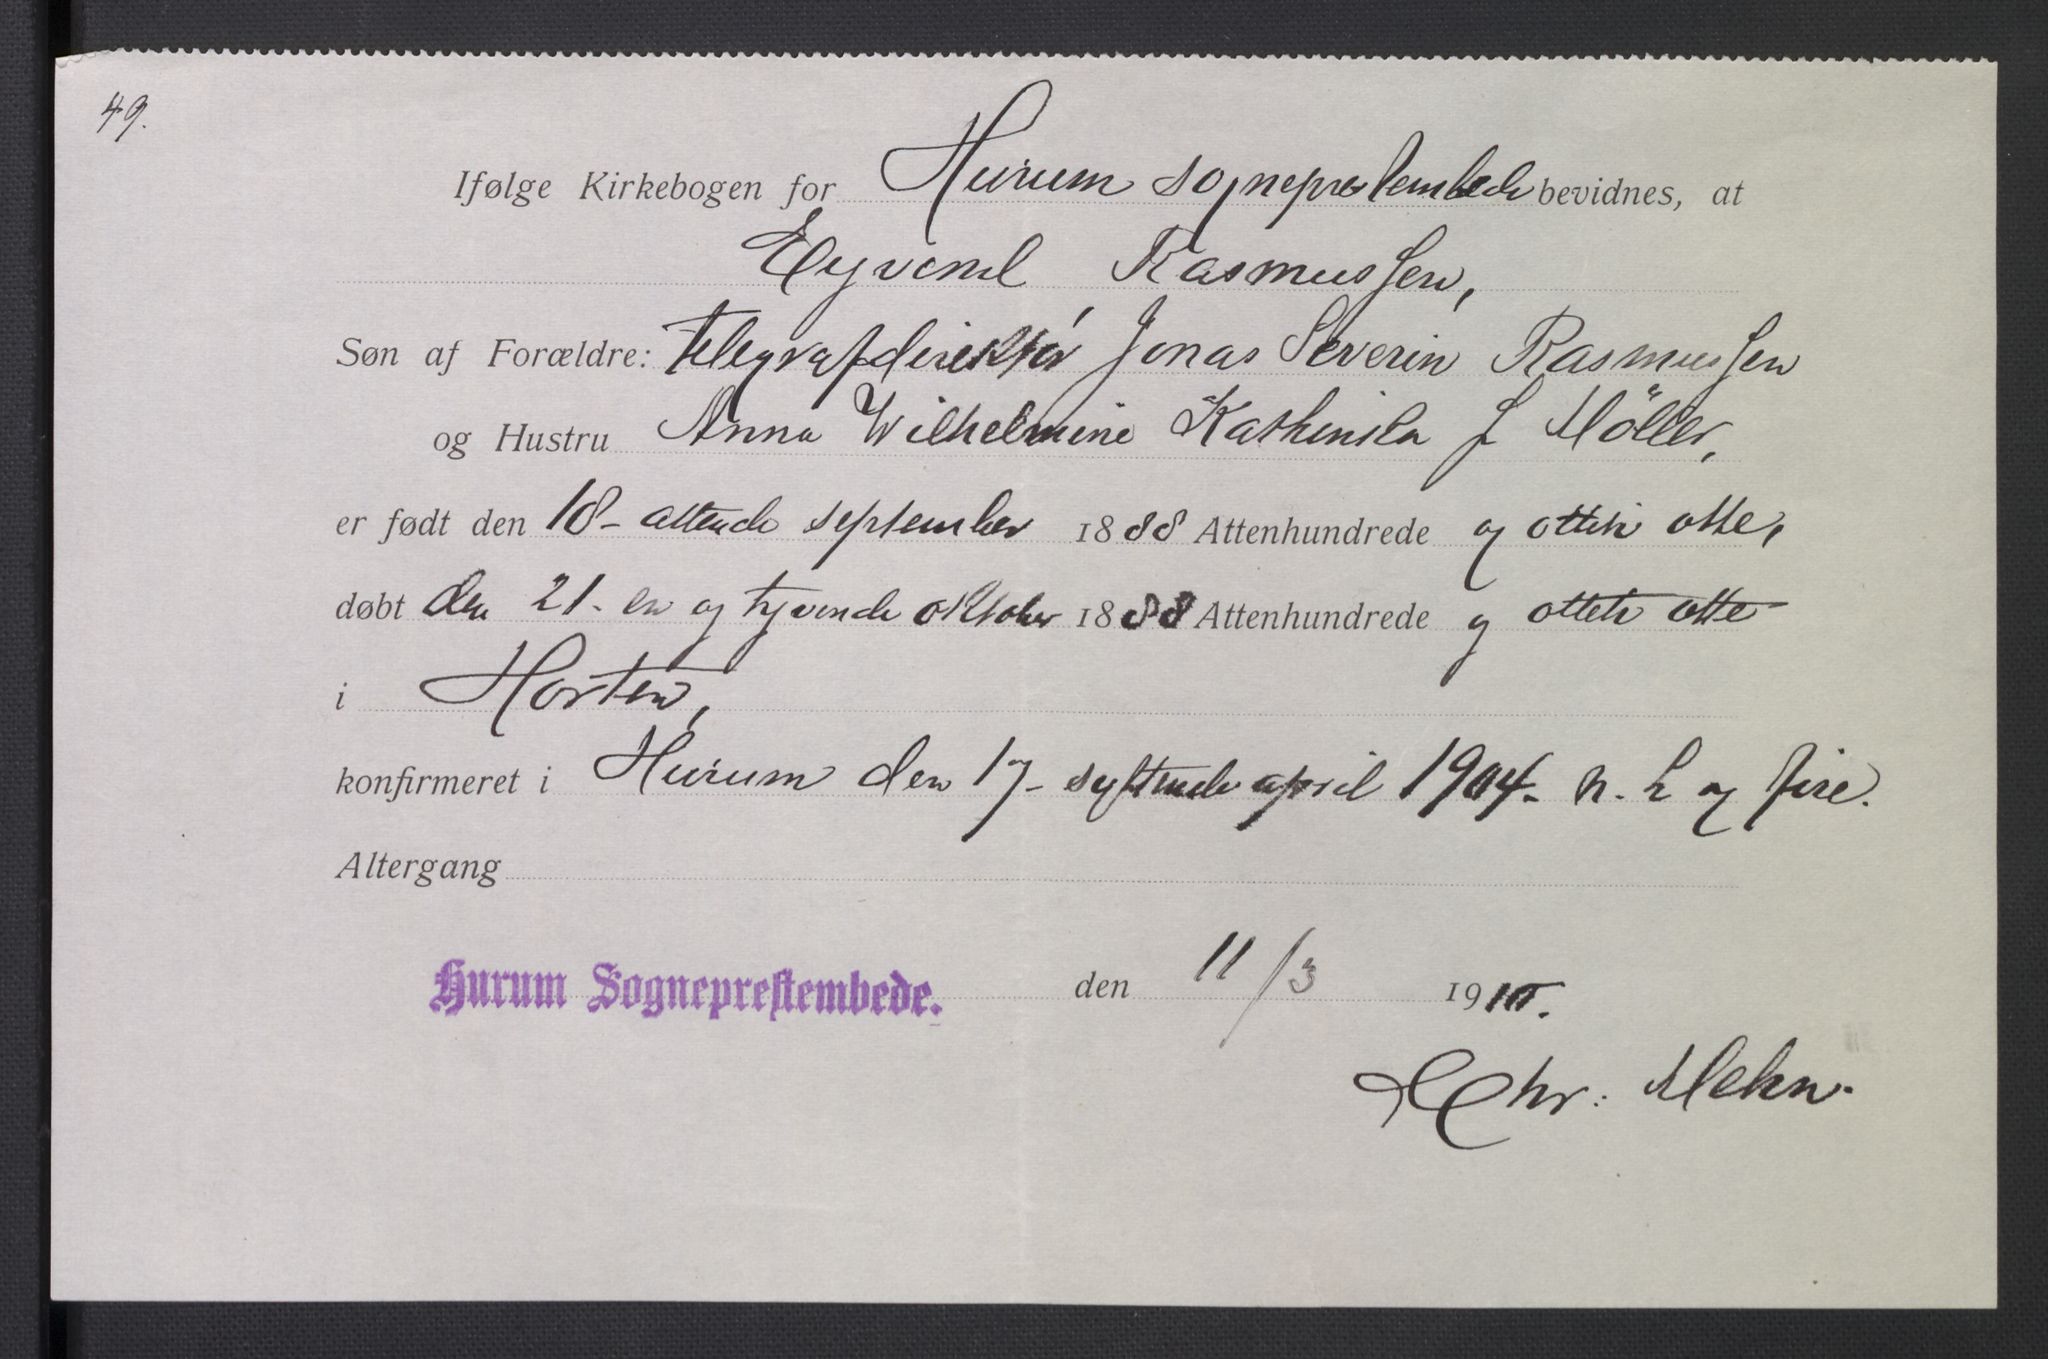 49.
Ifølge Kirkebogen for Hurum sogneprestembede bevidnes, at
Eyvend Rasmussen,
Søn af Forældre: telegrafdirektør Jonas Severin Rasmussen
og Hustru Anna Wilhelmine Kathinka f Möller,
er født den 18- attende september 1888 Attenhundrede og otteti otte,
døbt den 21- en og tyvende oktober 1888 Attenhundrede og otteti otte
i Horten,
konfirmeret i Hurum den 17- syttende april 1904- n. h og fire.
Altergang
Hurum Sogneprestembede. den 11/3 1910.
Chr: Mehn.